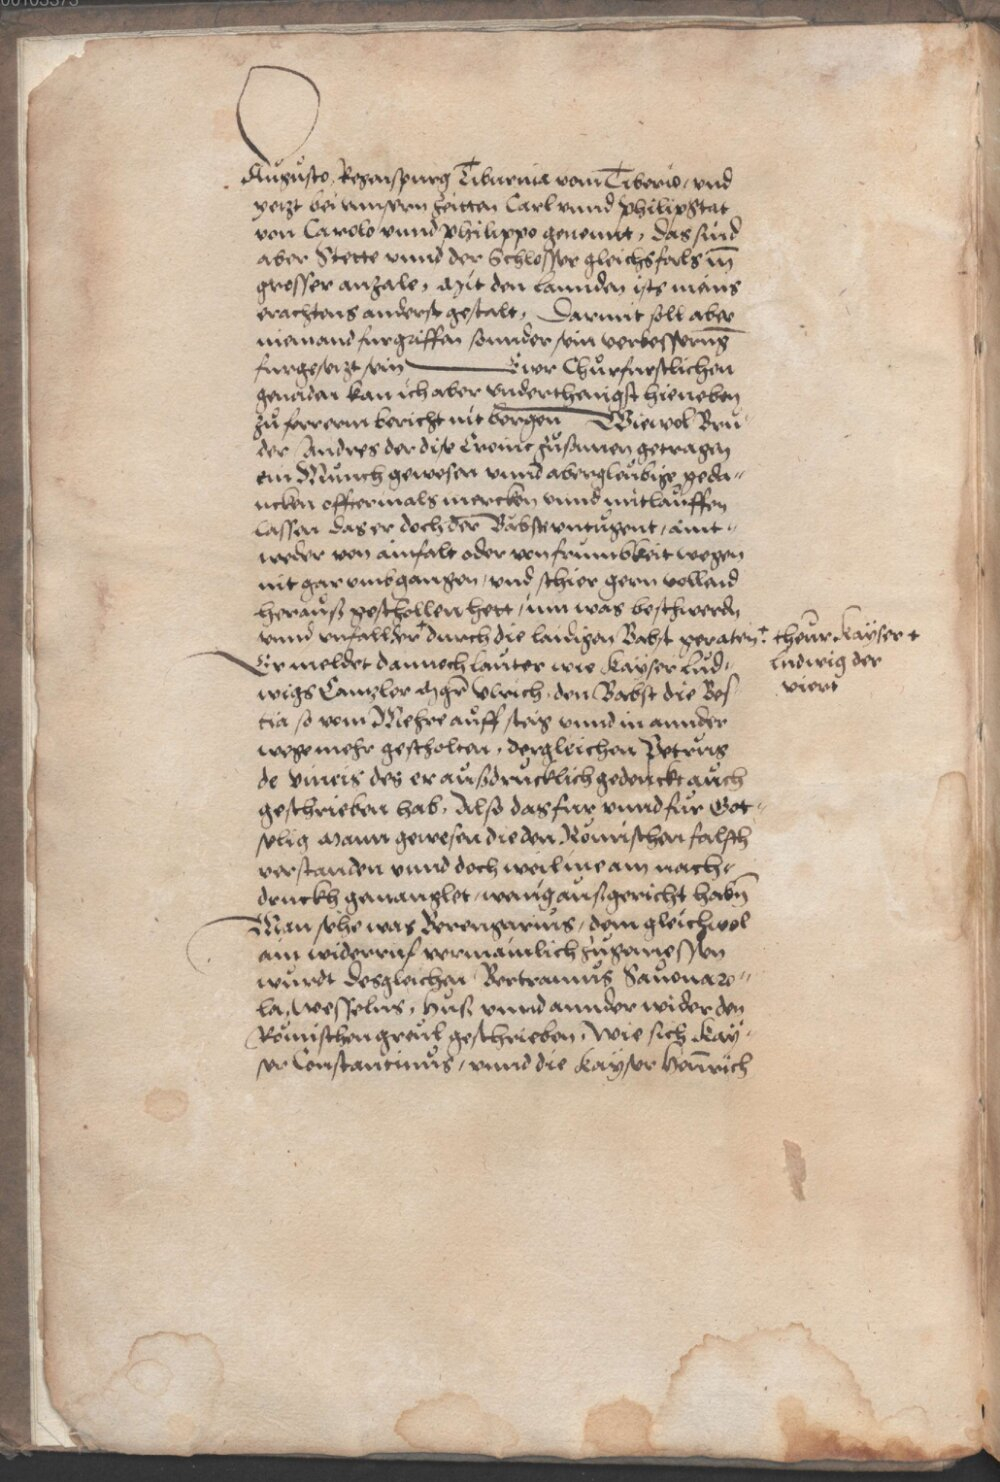 Augusto, Regenspurg Tiburnia vom Tiberio, vnd
yerzt bei vnnsern zeitten Carl vnnd Philipstat
von Carolo vnnd Philippo genennt, das sind
aber Stette vnnd der Schlosser gleichsfals in
grosser anzale, Mit den Lannden ists meins
erachtens anderst gestalt, Darmit soll aber
niemand furgriffen sonnder sein verbesserung
furgesezt sein Ewr Churfurstlichen
genaden kan ich aber vnderthenigst hieneben
zu ferrerm bericht nit bergen Wiewol Bru-
der Andres der dise Cronic zusamen getragen
ein Munch gewesen vnnd aberglaubige geda-
ncken offtermals mercken vnnd mitlauffen
lassen das er doch der Babste vntugent, aint-
weder von ainfalt oder von frumbkeit wegen
nit gar vmbgangen, vnd schier gern vollaid
herauß gescholten hett, inn was beschwerdn
vnnd vnfall der + durch die laidigen Babst geraten:
+ theur Kayser +
Ludwig der
viert
Er meldet dannoch lauter wie Kayser Lud-
wigs Canzler Mgr Vlrich, den Babst die Bes-
tia so vom Mehre auff steig vnnd in annder
wege mehr gescholten, dergleichen Petrus
de Vineis des er außdrucklich gedenckt auch
geschrieben hab, Also das fur vnnd fur Got-
selig Mann gewesen die den Romischen falsch
verstanden vnnd doch weil ine am nach-
druckh gemanglet, wenig außgericht habn
Man sehe was Berengarius, dem gleichwol
ain widerruf vermainlich zugemessen
wurdt desgleichen Bertramus Sauonaro-
la, Wesselus, Huß vnnd annder wider den
Romischen greul geschrieben, Wie sich Kay-
ser Constantinus, vnnd die Kayser Hainrich